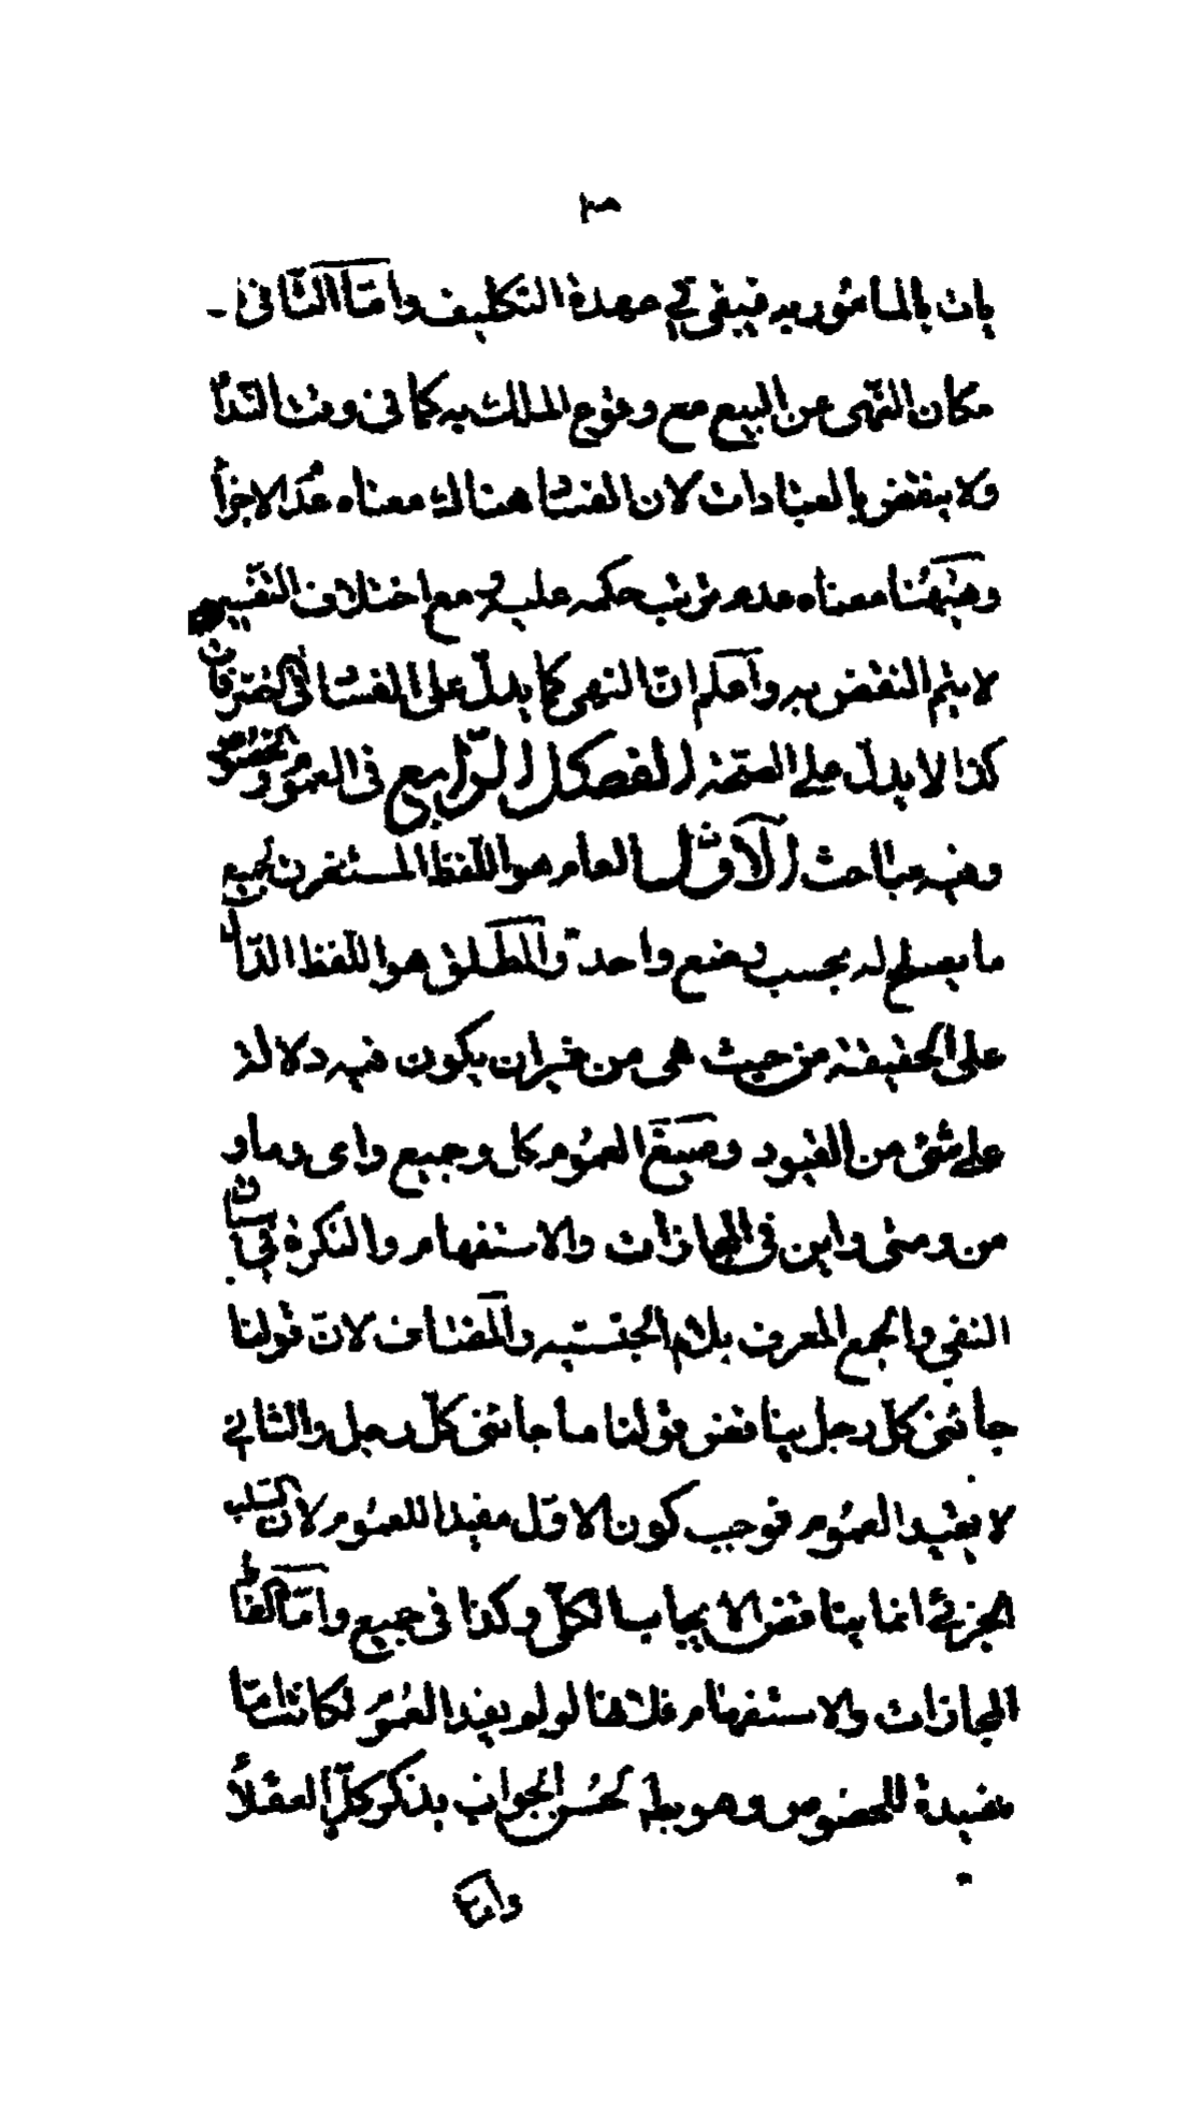 يات بالمامور به فيبقى في عهدة التكليف وامّا الثاني
مكان النّهى عن البيع مع وقوع الملك به كما في وقت النّدآ
ولا ينقض بالعبادات لان الفساد هناك معناه عدم الاجزآ
وهيهنا معناه عدم ترتب حكمه عليه ومع اختلاف التفسير
لا يتم النقض به واعلم انّ النهى كما يدلّ على الفساد في الضربان
كذا لا يدلّ على الصحّة الفصل الرّابع في العموم والخصوص
وفيه مباحث الاوّل العام هو اللفظ المستغرق لجميع
ما يصلح له بحسب وضع واحد والمطلق هو اللفظ الدّال
على الحقيقة من حيث هى من غير ان يكون فيه دلالة
على شئ من القيود وصيغ العموم كل وجميع واى وما و
من ومتى واين في المجازات والاستفهام والنكرة في سياق
النفي والجمع المعرف بلام الجنسيّة والمضاف لانّ قولنا
جائنى كلّ رجل يناقض قولنا ما جائنى كلّ رجل والثاني
لا يفيد العموم فوجب كون الاوّل مفيدا للعموم لان السّلب
الجزئى انما يناقض الايجاب الكلّى وكذا في جميع وامّا الفاظ
المجازات والاستفهام فلانها لو لم يفيد العموم لكانت امّا
مفيدة للخصوص وهو بط لحسن الجواب بذكر كلّ العقلآ